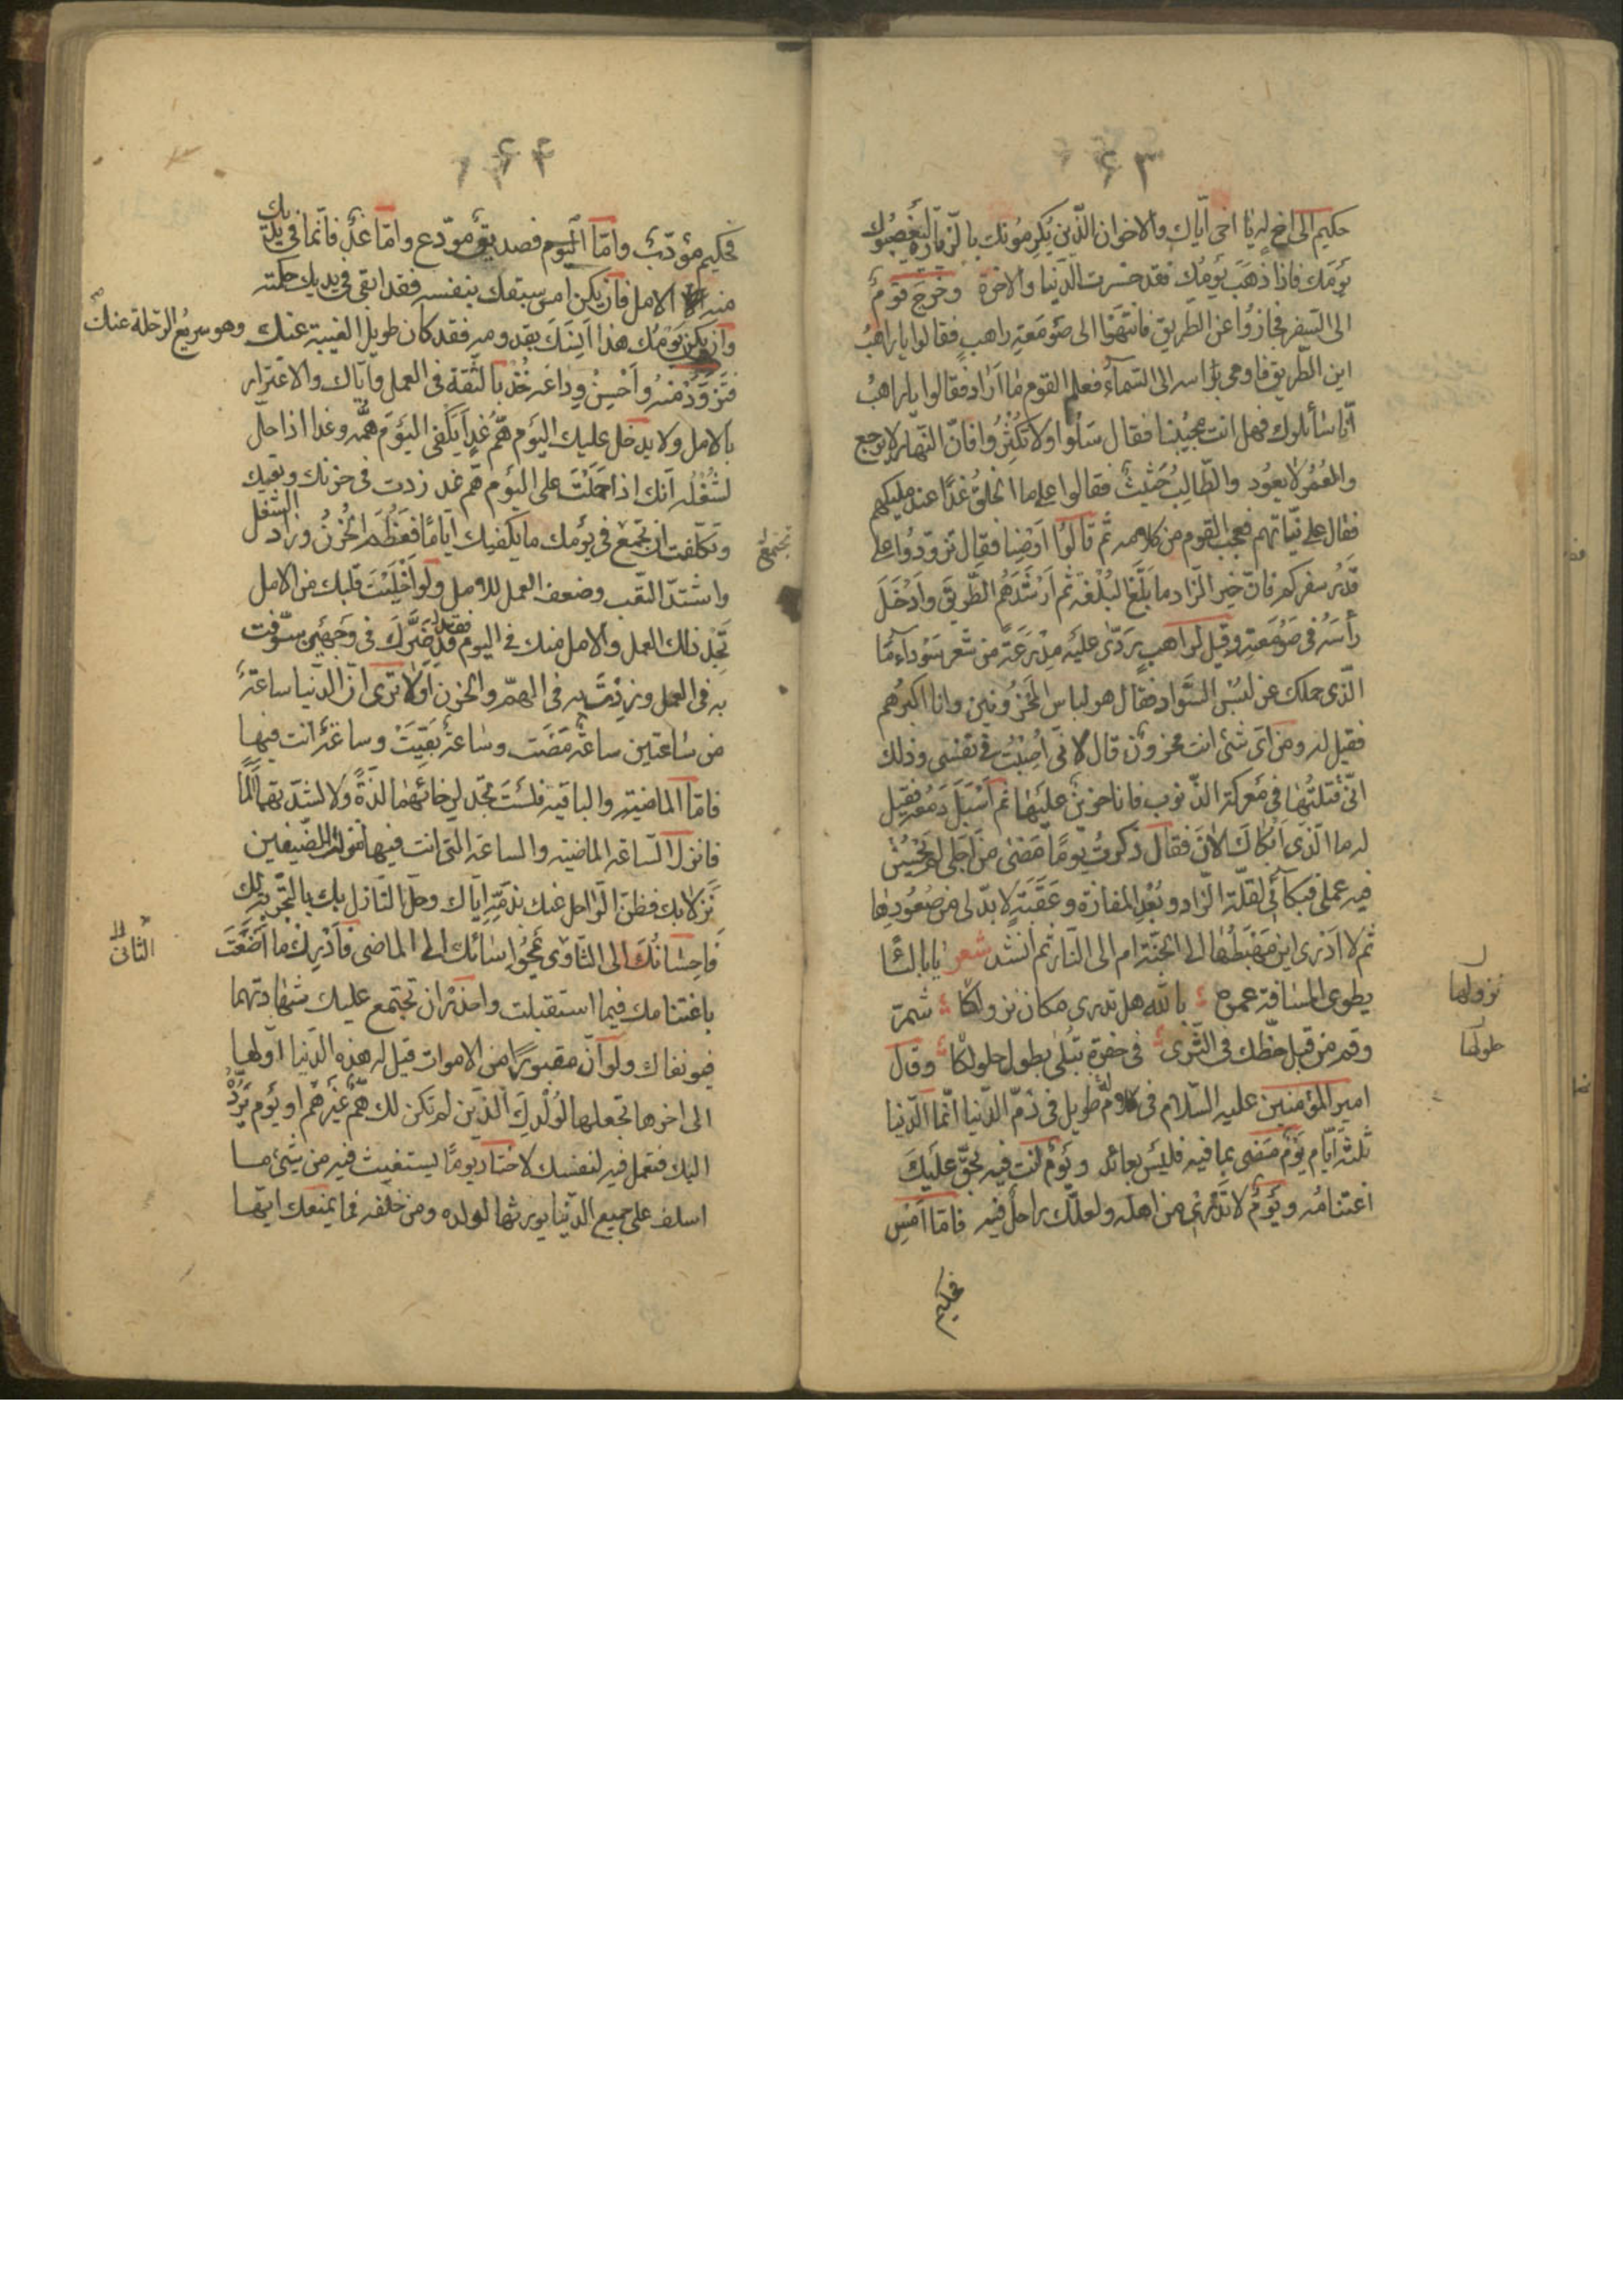 ٦٣
حكيم الى اخ له يا اخى اياك والاخوان الذين يكرمونك بالزيارة ليغصبوك
يومك فاذا ذهب يومك فقد خسرت الدنيا والاخرة وخرج قوم
الى السفر فجازوا عن الطريق فانتهوا الى صومعة راهب فقالوا يا راهب
اين الطريق فاومى براسه الى السماء فعلم القوم ما اراد فقالوا يا راهب
انا سائلوك فهل انت مجيبنا فقال سلوا ولا تكثروا فان النهار لا يرجع
والعمر لا يعود والطالب حثيث فقالوا على ما الخلق غدا عند مليكهم
فقال على نياتهم فعجب القوم من كلامه ثم قالوا اوصنا فقال تزودوا على
قدر سفركم فان خير الزاد ما بلغ البلغة ثم ارشدهم الطريق وادخل
رأسه فى صومعته وقيل لراهب يردى عليه مدرعة من شعر سوداء ما
الذى حملك عن لبس السواد فقال هو لباس المحزونين وانا اكبرهم
فقيل له ومن اى شئ انت محزون قال لانى اصبت فى نفسى وذلك
انى قتلتها فى معركة الذنوب فانا حزين عليها ثم اسبل دمعه فقيل
له ما الذى ابكاك الان فقال ذكرت يوما مضى من اجلى لم يحسن
فيه عملى فبكائى لقلة الزاد وبعد المفازة وعقبة لا بد لى من صعودها
ثم لا ادرى اين مهبطها الى الجنة ام الى النار ثم انشد شعر يا بالنا
يطوى المسافة عمره بالله هل تدرى مكان نزولكا شمر
نزولها
وقم من قبل حظك فى الثرى فى حفرة تبلى بطول حلولكا وقال
حلولها
امير المؤمنين عليه السلام فى كلام له طويل فى ذم الدنيا انما الدنيا
ثلثة ايام يوم مضى بما فيه فليس بعائد ويوم انت فيه يحق عليك
اغتنامه ويوم لا تدرى من اهله ولعلك راحل فيه فاما امس
فحكيم
٦٤
فحكيم مؤدب واما اليوم فصديق مودع واما غد فانما فى يديك
منه الامل فان يكن امس سبقك بنفسه فقد ابقى فى يديك حكمته
وان يكن يومك هذا انسك بقدومه فقد كان طويل الغيبة عنك وهو سريع الرحلة عنك
فتزود منه واحسن وداعه خذ بالثقة فى العمل واياك والاغترار
بالامل ولا يدخل عليك اليوم هم غد يكفى اليوم همه وغدا اذا حل
لشغله انك اذا حملت على اليوم هم غد زدت فى حزنك وتعبك
وتكلفت ان تجمع فى يومك ما يكفيك اياما فعظم الحزن وزاد الشغل
تجتمع
واشتد التعب وضعف العمل للامل ولو اخليت قلبك من الامل
تجد ذلك العمل والامل منك فى اليوم فقد ضرك فى وجهين سوفت
به فى العمل وزدت به فى الهم والحزن اولا ترى ان الدنيا ساعة
من ساعتين ساعة مضت وساعة بقيت وساعة انت فيها
فاما الماضية والباقية فلست تجد لرخائهما لذة ولا لشدتهما الما
فانزل الساعة الماضية والساعة التى انت فيها منزلة الضيفين
نزلا بك فظن الراحل عنك بذمته اياك وحل النازل بك بالتجربة لك
فاحسانك الى الثاوى يمحو اسائتك الى الماضى فادرك ما اضعت
الثانى
باغتنامك فيما استقبلت واحذر ان تجتمع عليك شهادتهما
فيوبقاك ولو ان مقبورا من الاموات قيل له هذه الدنيا اولها
الى اخرها تجعلها لولدك الذين لم تكن لك هم غيرهم او يوم يرد
اليك فتعمل فيه لنفسك لاختار يوما يستغيث فيه من شئ ما
اسلف على جميع الدنيا يورثها لولده ومن خلفه فما يمنعك ايها